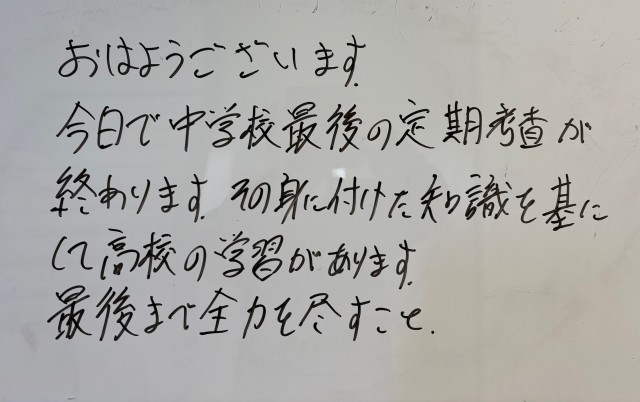 おはようございます.
今日で中学校最後の定期考査が
終わります. その身に付けた知識を基に
して高校の学習があります.
最後まで全力を尽すこと.